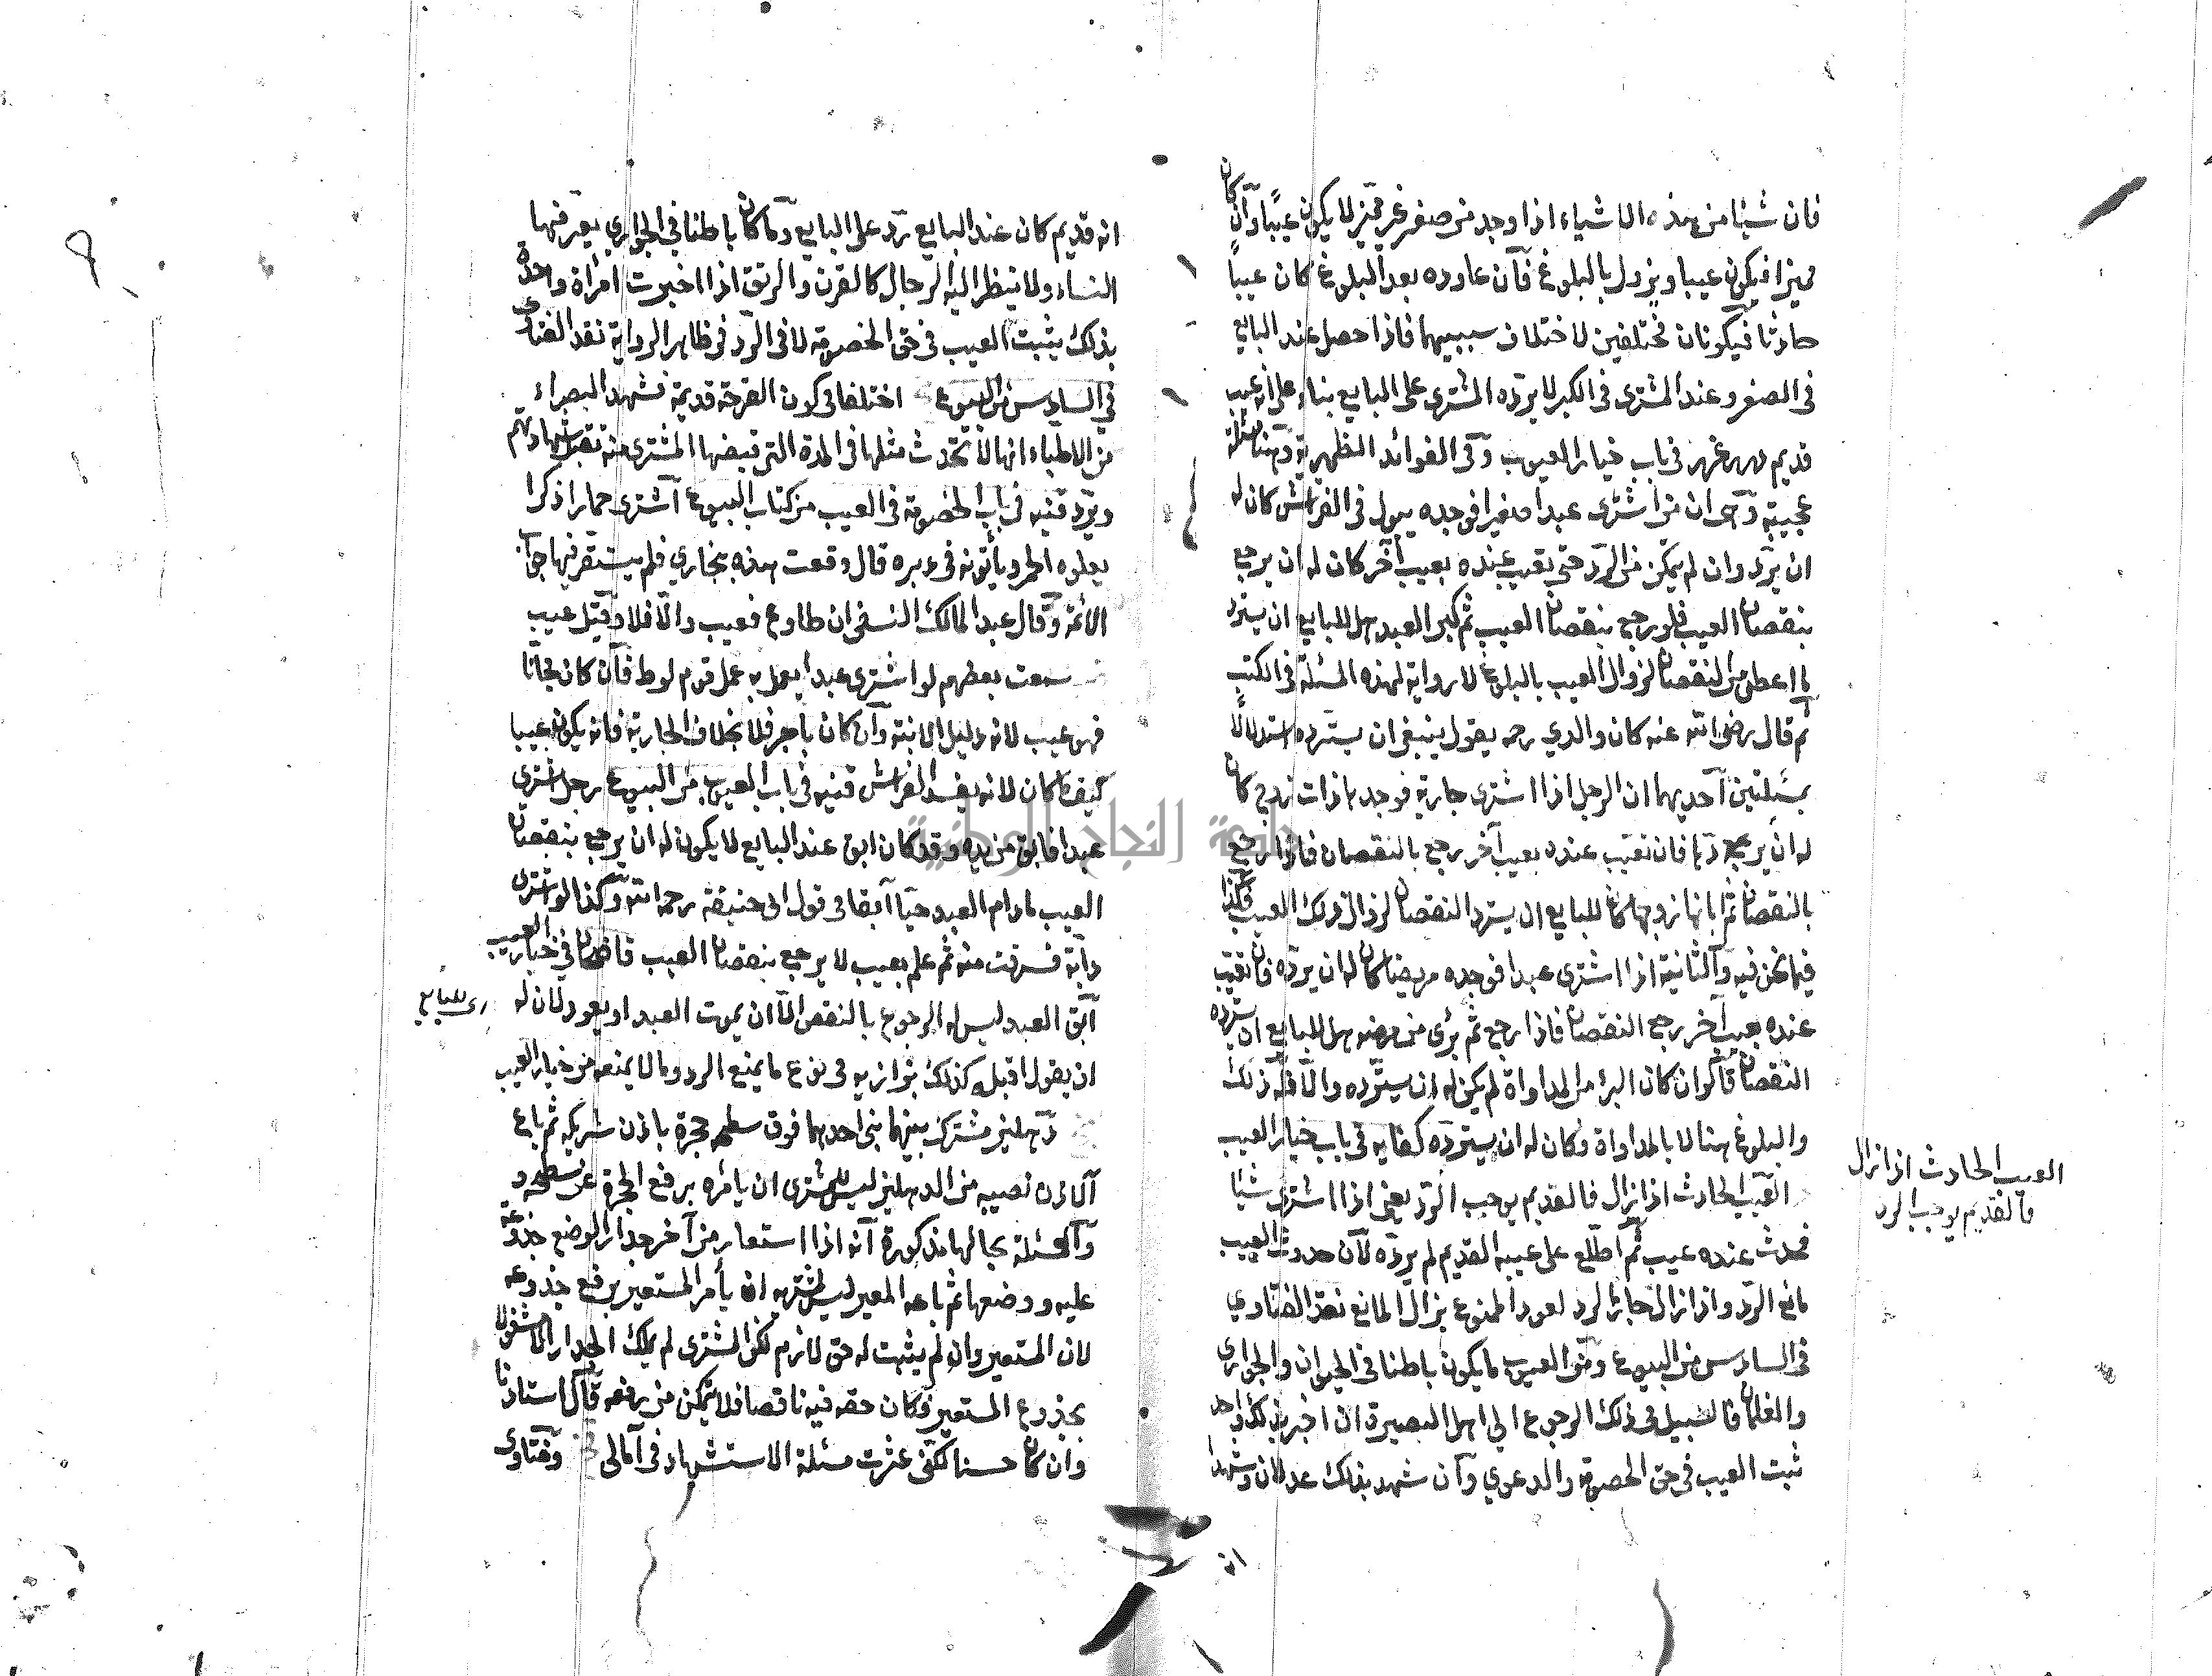 فان شيئا من هذه الاشياء اذا وجد من صغير غير مميز لا يكون عيبًا وان كان
مميزا فيكون عيبا ويزول بالبلوغ فان عاوده بعد البلوغ كان عيبًا
حادثا فيكونان مختلفين لاختلاف سببيهما فاذا حصل عند البايع
في الصغر وعند المشترى في الكبر لا يرده المشترى على البايع بناء على انه عيب
قديم درر غرر في باب خيار العيوب وفي الفوائد الظهيرية وهنا مسئلة
عجيبة وهى ان من اشترى عبدا صغيرا فوجده يبول في الفراش كان له
ان يرد وان لم يتمكن من الرد حتى تعيب عنده بعيب آخر كان له ان يرجع
بنقصان العيب فلو رجع بنقصان العيب ثم كبر العبد هل للبايع ان يسترد
ما اعطى من النقصان لزوال العيب بالبلوغ لا رواية لهذه المسئلة في الكتب
ثم قال رضى الله عنه كان والدي رحمه يقول ينبغى ان يسترده استدلالًا
بمسئلتين احديهما ان الرجل اذا اشترى جارية فوجدها ذات زوج كان
له ان يردها فان تعيب عنده بعيب آخر رجع بالنقصان فاذا رجع
بالنقصان ثم ابانها زوجها كان للبايع ان يسترد النقصان لزوال ذلك العيب فكذا
فيما نحن فيه والثانية اذا اشترى عبدا فوجده مريضا كان له ان يرده فان تعيب
عنده بعيب آخر رجع النقصان فاذا رجع ثم برئ من مرضه هل للبايع ان يسترده
النقصان قالوا ان كان البرء من المداواة لم يكن له ان يسترده والا فله ذلك
والبلوغ هنا لا بالمداواة فكان له ان يسترده كفايه في باب خيار العيب
العيب الحادث اذا زال فالقديم يوجب الرد يعنى اذا اشترى شيئا
فحدث عنده عيب ثم اطلع على عيبه القديم لم يرده لان حدوث العيب
مانع الرد واذا زال جاز الرد لعود الممنوع بزوال المانع نقد الفتاوي
في السادس من البيوع ومن العيوب ما يكون باطنا في الحيوان والجوارى
والغلمان فالسبيل في ذلك الرجوع الى اهل البصيرة ان اخبر بذلك واحد
ثبت العيب في حق الخصومة والدعوي وان شهد بذلك عدلان وشهدا
انه
العيب الحادث اذا زال
فالقديم يوجب الرد
انه قديم كان عند البايع رد على البايع وما كان باطنا في الجواري يعرفها
النساء ولا ينظر اليه الرجال كالقرن والرتق اذا اخبرت امرأة واحدة
بذلك يثبت العيب في حق الخصومة لا في الرد في ظاهر الرواية نقد الفتاوى
في السادس من البيوع اختلفا في كون القرحة قديمة فشهد البصراء
من الاطباء انها لا تحدث مثلها في المدة التى قبضها المشترى منه تقبل شهادتهم
ويرد قنيه في باب الخصومة في العيب من كتاب البيوع اشترى حمارا ذكرا
يعلوه الحمر ويأتونه في دبره قال وقعت هذه ببخاري فلم يستقر فيها جواب
الائمة وقال عبد المالك النسفى ان طاوع فعيب والا فلا وقيل عيب
سمعت بعضهم لو اشترى عبدا يعمل به عمل قوم لوط فان كان مجانا
فهو عيب لانه دليل الابنة وان كان بأجر فلا بخلاف الجارية فانه يكون عيبا
كيفما كان لانه يفسد الفراش قنيه في باب العيوب من البيوع رجل اشترى
عبدا فابق من يده وقد كان ابق عند البايع لا يكون له ان يرجع بنقصان
العيب ما دام العبد حيا آبقا في قول ابى حنيفة رحمه الله وكذا لو اشترى
دابة فسرقت منه ثم علم بعيب لا يرجع بنقصان العيب قاضيخان في خيار العيب
ابق العبد ليس له الرجوع بالنقص الا ان يموت العبد او يعود لان له
اى للبايع
ان يقول اقبله كذلك بزازيه في نوع ما يمنع الرد وما لا يمنعه من خيار العيب
دهليز مشترك بينهما بنى احدهما فوق سطحه حجرة باذن شريكه ثم باع
الآذن نصيبه من الدهليز ليس للمشترى ان يأمره برفع الحجرة عن سطحه و
والمسئلة بحالها مذكورة انه اذا استعار من آخر جدارا لوضع جذوعه
عليه ووضعها ثم باعه المعير ليس لمشتريه ان يأمر المستعير برفع جذوعه
لان المستعير وان لم يثبت له حق لازم لكن المشترى لم يملك الجدار الا مشغولا
بجذوع المستعير فكان حقه فيه ناقصا فلا يتمكن من رفعه قال استاذنا
وان كان حسنا لكنى عثرت مسئلة الاستشهاد في امالى وفتاوى
جامعة النجاح الوطنية